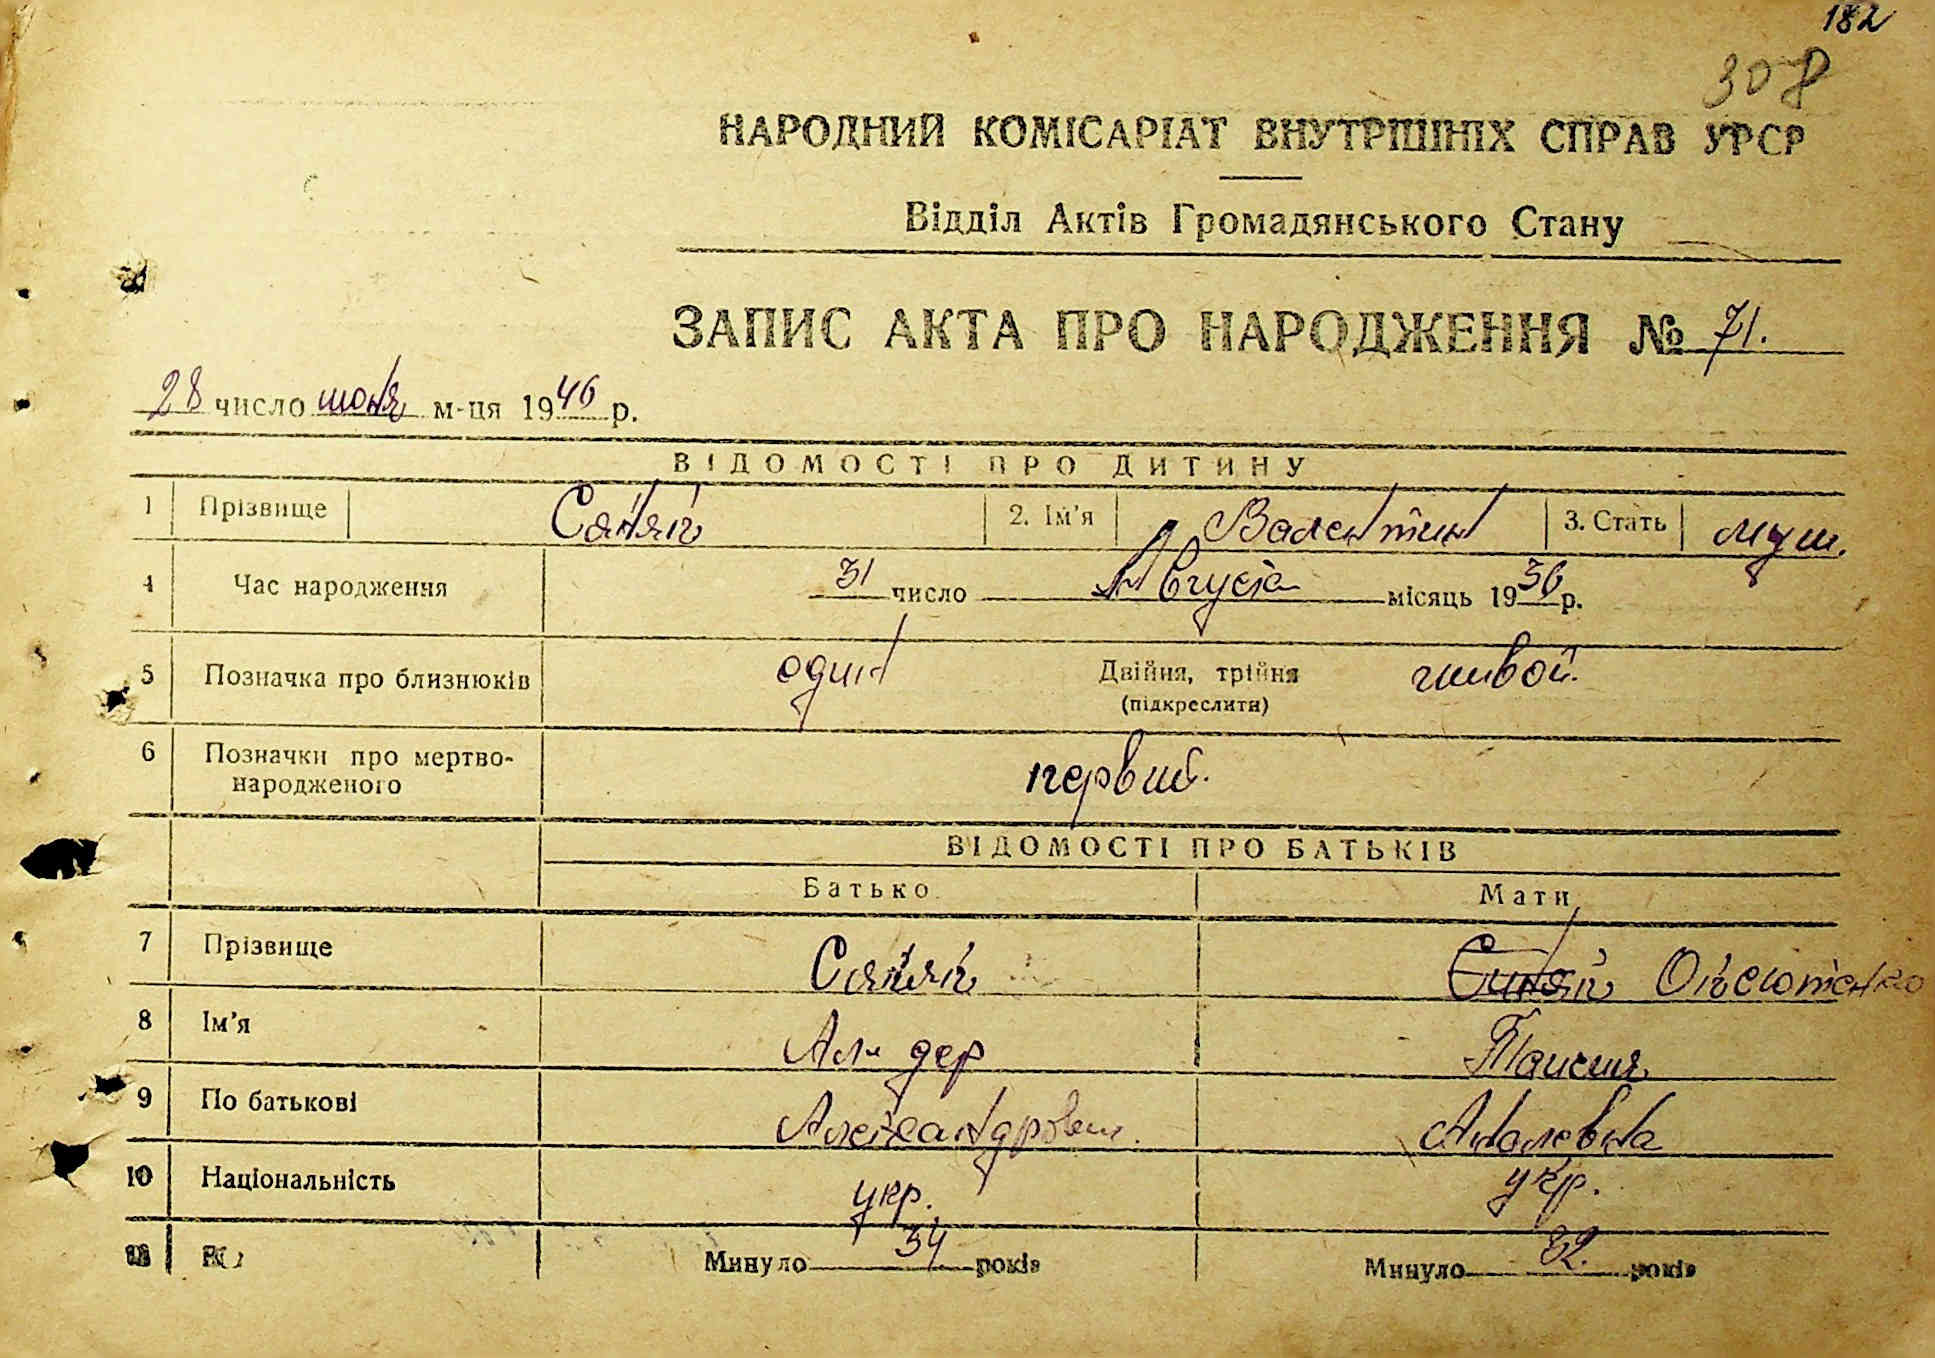 182
308
НАРОДНИЙ КОМІСАРІАТ ВНУТРІШНІХ СПРАВ УРСР
Відділ Актів Громадянського Стану
ЗАПИС АКТА ПРО НАРОДЖЕННЯ № 71.
28 число июня м-ця 1946 р.
ВІДОМОСТІ ПРО ДИТИНУ
1 Прізвище 2. Ім'я Валентин 3. Стать муш.
4 Час народження 31 число Августа місяць 1936 р.
5 Позначка про близнюків один Двійня, трійня живой.
(підкреслити)
6 Позначки про мертво-
народженого первий.
ВІДОМОСТІ ПРО БАТЬКІВ
Батько Мати
7 Прізвище
8 Ім'я Таисия
9 По батькові Александрович.
10 Національність укр. укр.
Минуло 34 років Минуло 32. років